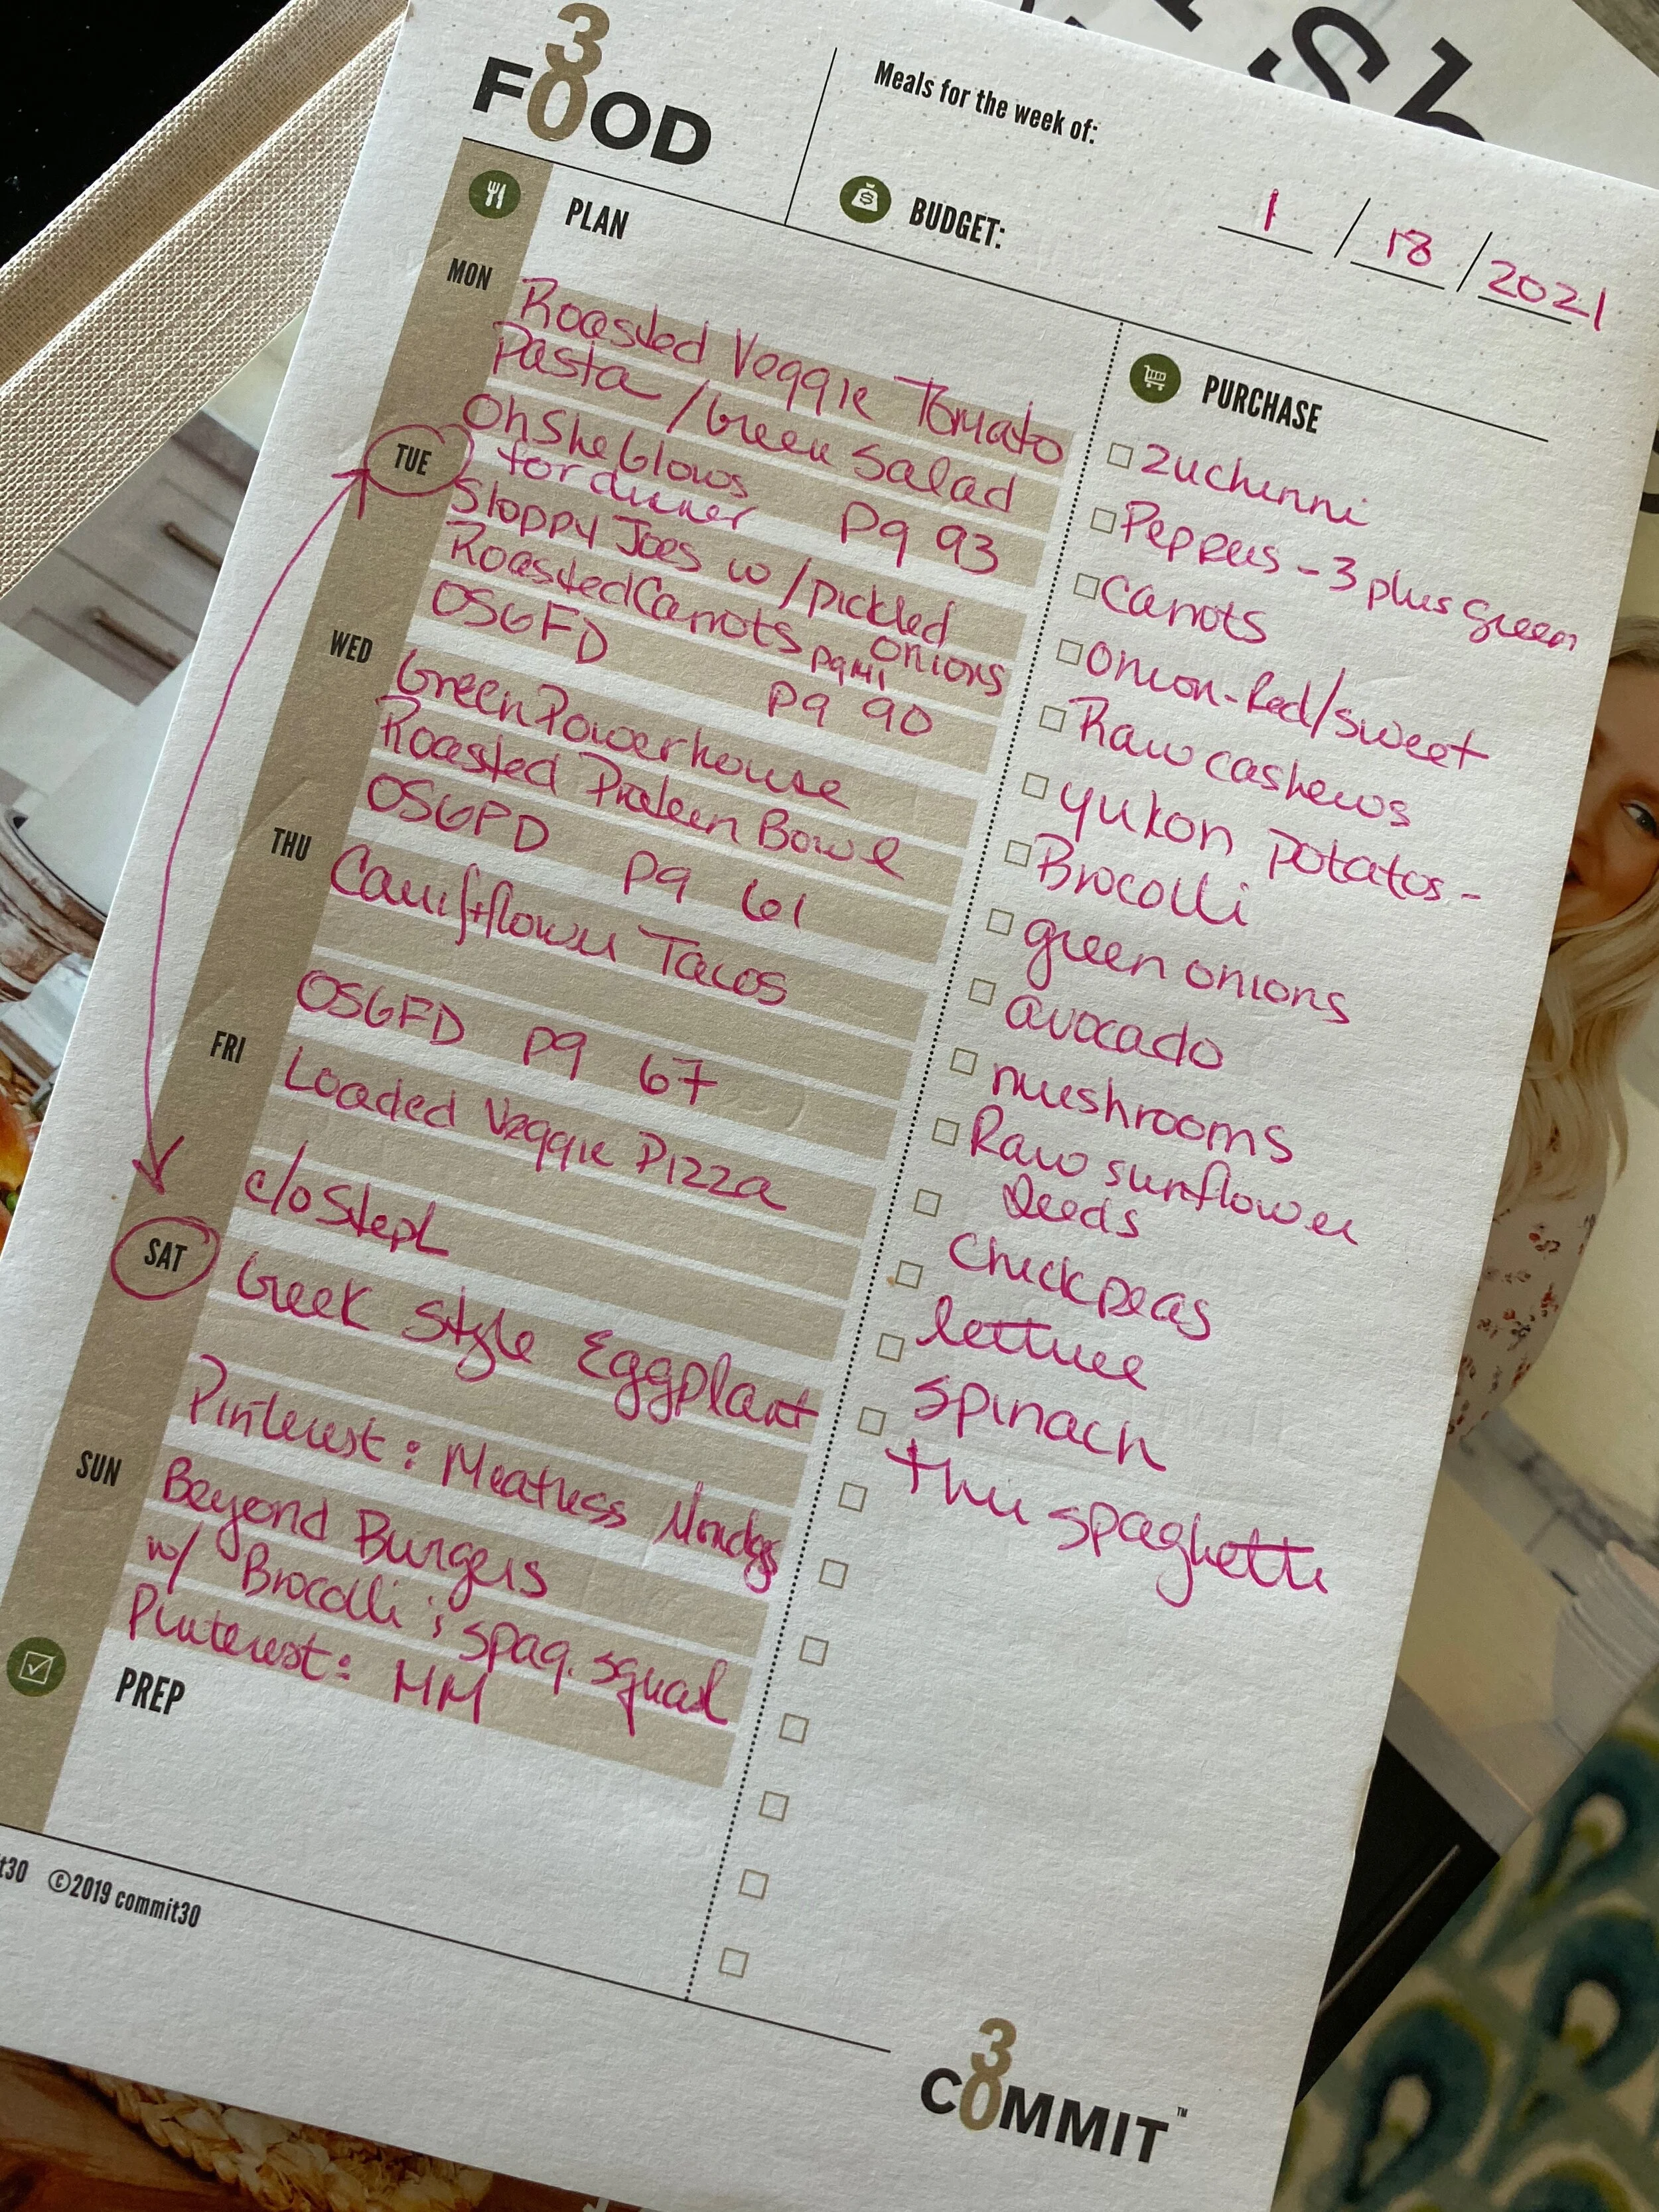 sh
30
FOOD
Meals for the week of:
1 / 18 / 2021
BUDGET:
PLAN
MON
Roasted Veggie Tomato
Pasta / Green Salad
Oh She Glows
for dinner pg 93
TUE
Sloppy Joes w/ pickled
onions
Roasted Carrots pg 141
OSGFD pg 90
WED
Green Powerhouse
Roasted Protein Bowl
OSGFD pg 61
THU
Cauliflower Tacos
OSGFD pg 67
FRI
Loaded Veggie Pizza
c/o Steph
SAT
Greek Style Eggplant
Pinterest: Meatless Mondays
SUN
Beyond Burgers
w/ Brocolli & spag. squash
Pinterest: MM
PREP
PURCHASE
Zuchinni
Peppers - 3 plus green
Carrots
Onion - Red/sweet
Raw cashews
yukon potatos -
Brocolli
green onions
avocado
mushrooms
Raw sunflower
seeds
Chickpeas
lettuce
spinach
thin spaghetti
t30 ©2019 commit30
30
COMMIT™